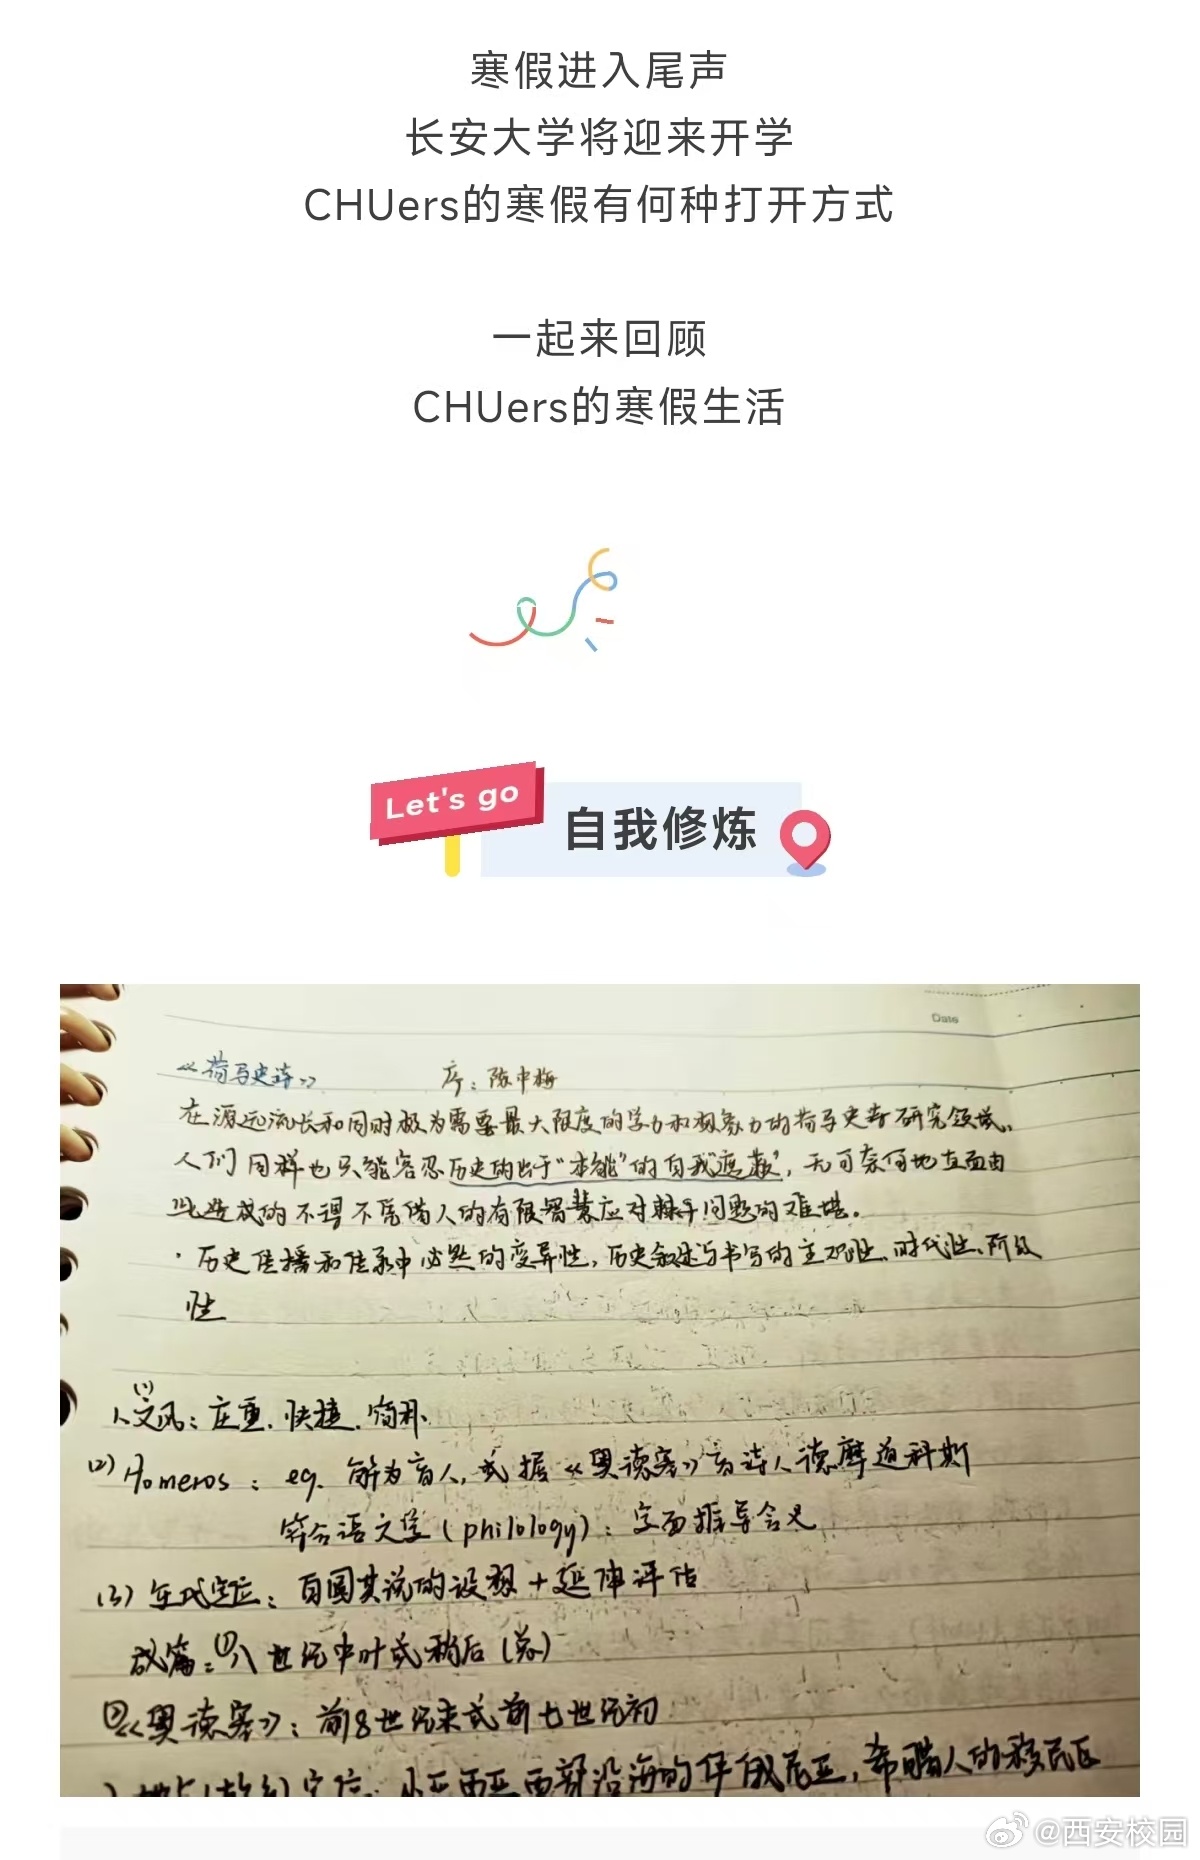 寒假进入尾声
长安大学将迎来开学
CHUers的寒假有何种打开方式
一起来回顾
CHUers的寒假生活
Let's go
自我修炼
Date
《荷马史诗》 序：陈中梅
在源远流长和同时极为需要最大限度的学力和想象力的荷马史诗研究领域，
人们同样也只能容忍历史的出于“本能”的自我遮蔽，无可奈何地直面由
此造成的不得不凭借人的有限智慧应对棘手问题的难堪。
·历史传播和传承中必然的变异性，历史叙述与书写的主观性、时代性、阶级
性
(1)
人文风：庄重、快捷、简朴、
(2) Homeros：eg. 解为盲人，或据《奥德赛》盲诗人德摩道科斯
符合语文学(philology)：字面推导含义
(3) 年代定位：自圆其说的设想＋延伸评估
成篇：①八世纪中叶或稍后
②《奥德赛》：前8世纪末或前七世纪初
定位：小亚西亚西部沿海的伊俄尼亚，希腊人的移民区
@西安校园